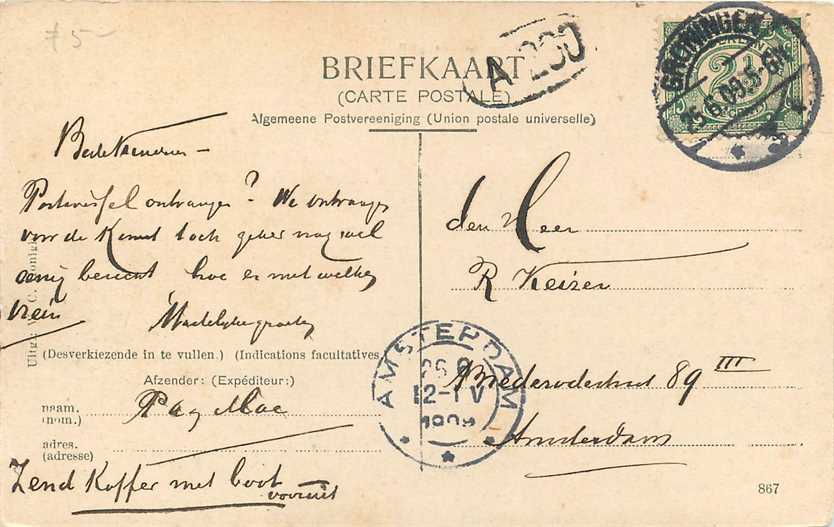 75-
A 200
BRIEFKAART
(CARTE POSTALE)
Algemeene Postvereeniging (Union postale universelle)
GRONINGEN
25.6.08 5-6N
2½
Postwissel ontvangen? We ontvangen
voor de komst toch gaarne nog wel
eenig bericht hoe en met welken
trein
Hartelijke groeten
Uitg.:
(Desverkiezende in te vullen.) (Indications facultatives.)
Afzender: (Expéditeur:)
naam.
(nom.)
Pa
adres.
(adresse)
Zend Koffer met boot
vooruit
den Heer
R Keizer
Brederodestraat 89 III
Amsterdam
AMSTERDAM
26.6
12-1 V
1908
867